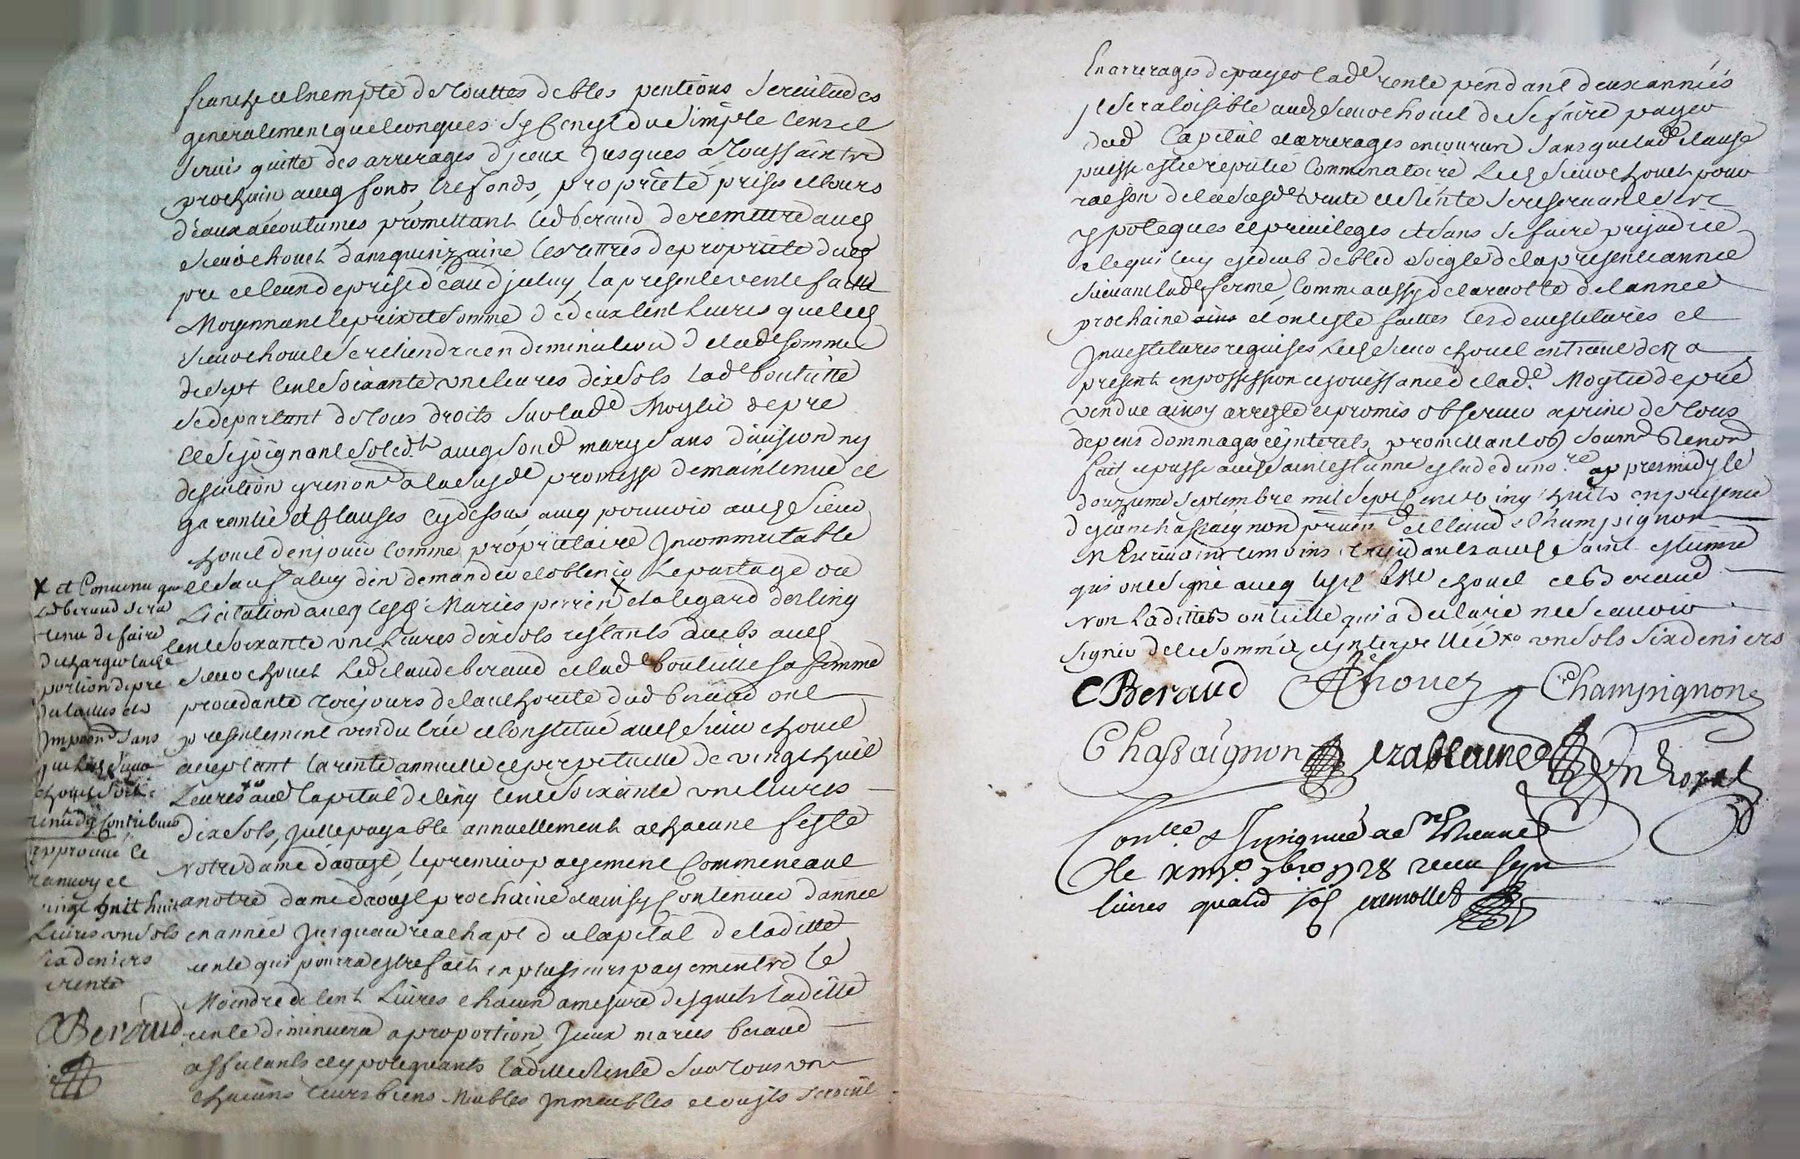 franche et exempte de touttes debtes pentions servitudes
generalement quelconques sy ce n'est du simple cens et
servis quitte des arrerages d'jceux jusques a toussaintz
prochain avecq fonds, trefonds, proprieté prises et cours
d'eaux accoutumés promettant led beraud de remettre audt
sieur chouet dans quinzaine les tittres de proprieté dudt
pré et leaud de prise d'eaud jceluy, la presente vente faitte
Moyennant le prix et somme de deux cent livres que led
sieur chouet se retiendra en diminution de lad somme
de sept cent soixante une livres dix sols lade bouteitte
se departant de tous droits sur lade Moytié de pre
et se joignant solidt avecq sond mary sans division ny
discution a la susde promesse de maintenue et
garantie et clauses cy dessus avecq pouvoir audt sieur
chouet d'en jouir comme proprietaire jncommutable
et sauf a luy d'en demander et obtenir le partage ou
Licitation avecq lesd Mariés perrin X et a legard des cinq
cent soixante une Livres dix sols restants deubs audt
sieur chouet Led Claude beraud et lade bouteille sa femme
procedante toujours de lauthorité dud beraud ont
presentement vendu créé et constitué audt sieur chouet
acceptant la rente annuelle et perpetuelle de vingt huit
Livres au Capital de cinq cent soixante une livres
dix sols, jcelle payable annuellement a chacune feste
Notre dame daoust, le premier payement Commencant
a notre dame daoust prochaine et ainsy Continuer d'annee
en année jusquau reachapt du Capital de laditte
rente qui pourra estre fait en plusieurs payements le
Moindre de cent Livres chacun a mesure desquels laditte
rente diminuera a proportion, jceux mariés beraud
assurants et ypotequants laditte rente sur tous un
chacuns leurs biens Meubles jmmeubles et
X et Convenu que
led beraud sera
tenu de faire
decharger lade
portion de pre
sans
que led sieur
chouet soit
tenu dy contribuer
approuvé le
renvoy et
vingt huit
Livres un sols
six deniers
rente
CBeraud
En arrerages de payer lade rente pendant deux annéés
jl sera loisible audt sieur chouet de se faire payer
dud Capital et arrerages encourus sans que lade clause
puisse estre reputée Comminatoire Led sieur chouet pour
raison de la susde vente et rente se reservant ses
ypoteques et privileges et sans se faire prejudice
de qui luy est deub de bled soigle de la presente année
suivant lade ferme, Comme aussy de la recolte de lannée
prochaine et ont esté faittes les devestitures et
jnvestitures requises Led sieur chouet entrant dez a
present en possession et jouissance de lade Moytié de pré
vendue ainsy arresté et promis observer a peine de tous
depens dommages et jnterets, promettant obt soumt Renont
fait et passé audt saint estienne estude du nore appres midy le
douzieme septembre mil sept cent vingt huit en presence
de jean chassaignon praticien et Claude Champignon
temoins audt saint estienne
qui ont signé avecq led sr chouet et beraud
Non laditte bouteille qui a declaré ne scavoir
signer de ce sommée et jnterpellée un sols six deniers
CBeraud Chouet Champignon
Chassaignon
Conllé & jnsinué a st Estienne
le xiiije 7bre 1728 receu sept
livres quatre sols cremollet